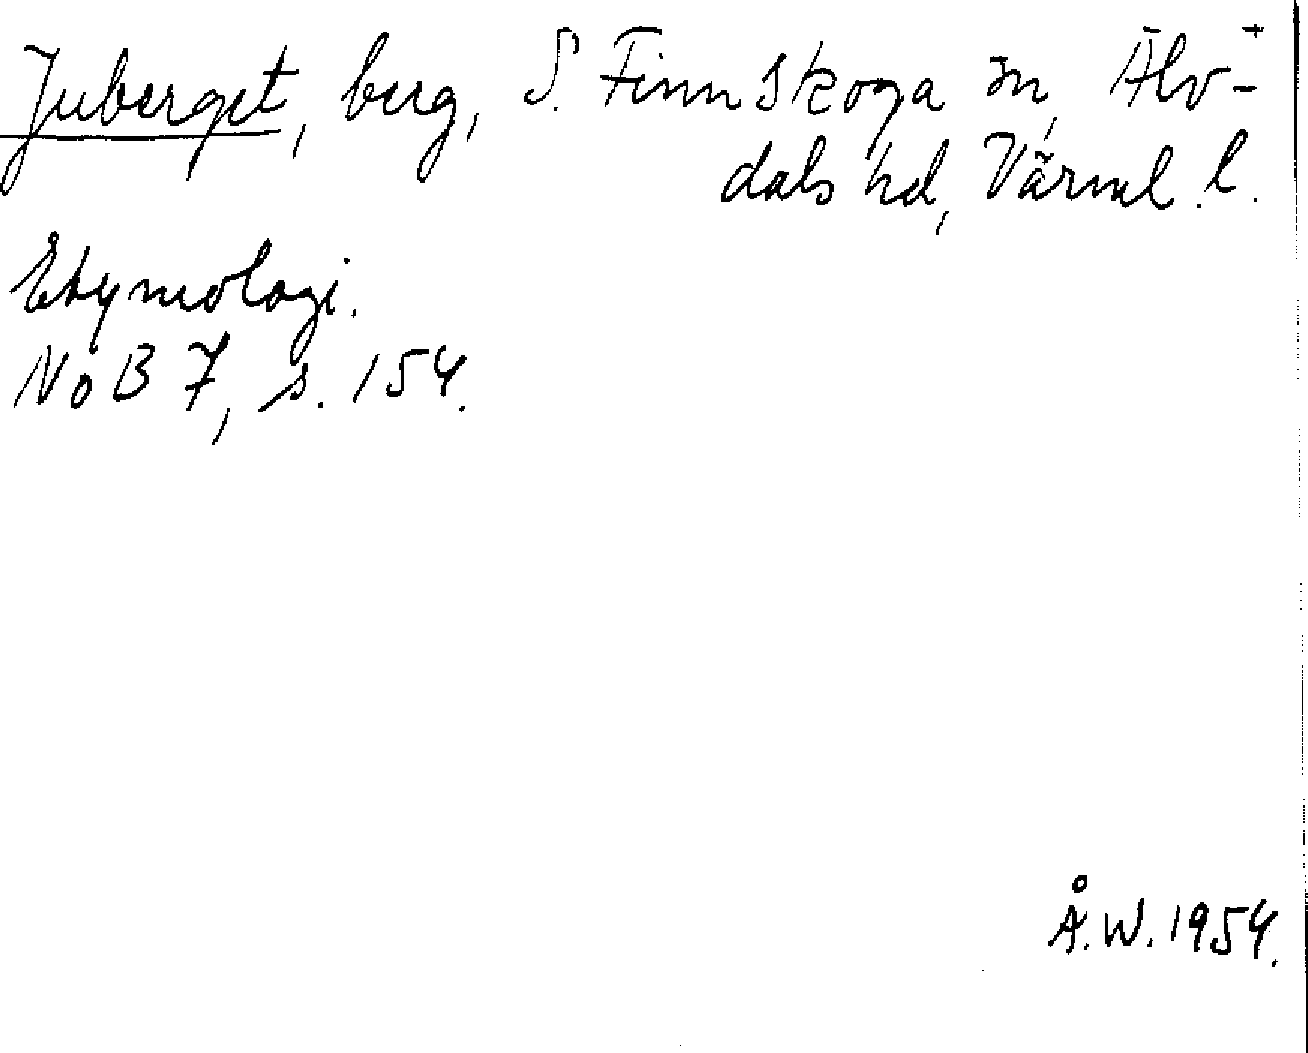 Juberget, berg, S. Finnskoga sn, Älv-
dals hd, Värml. l.
Etymologi.
NoB 7, s. 154.
Å.W. 1954.